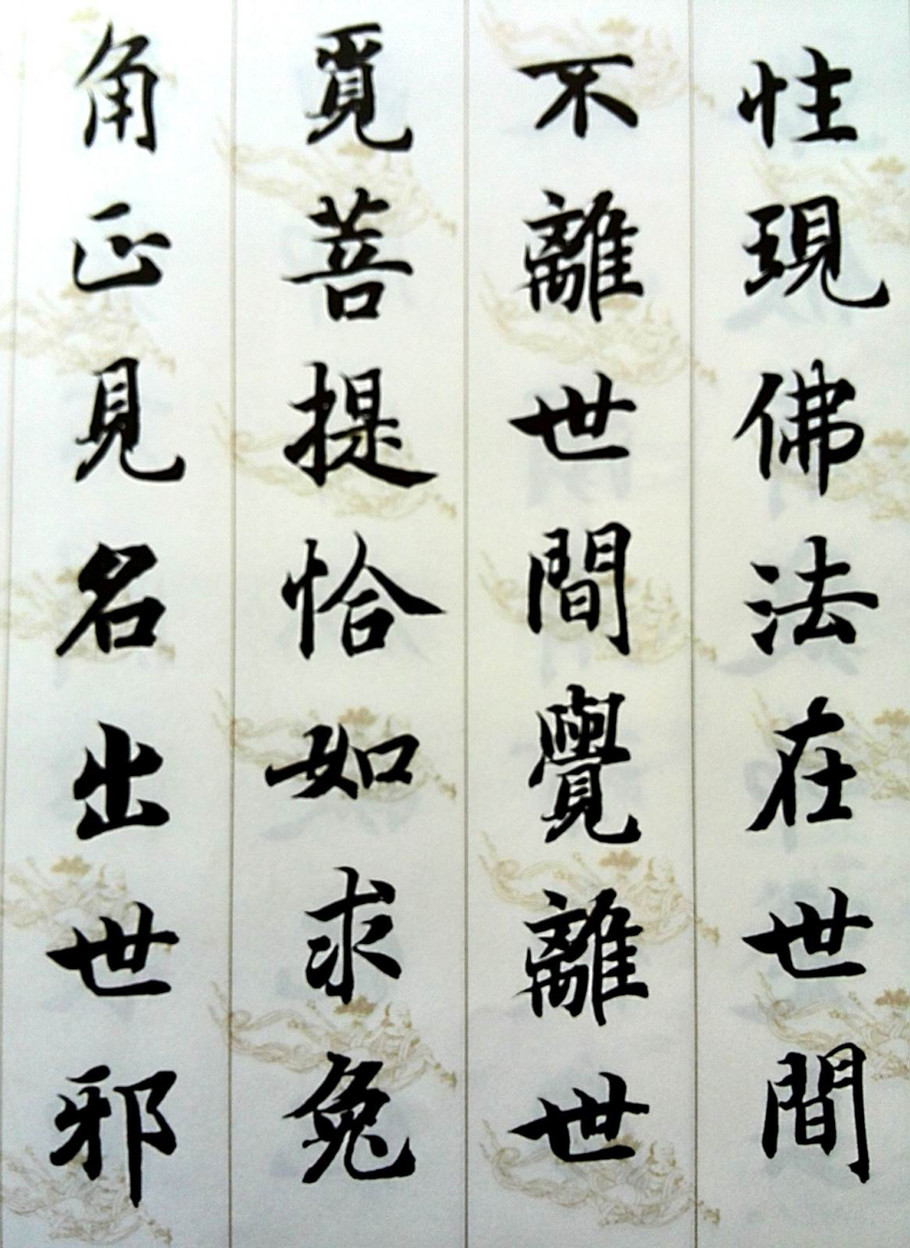 性現佛法在世間
不離世間覺離世
覓菩提恰如求兔
角正見名出世邪